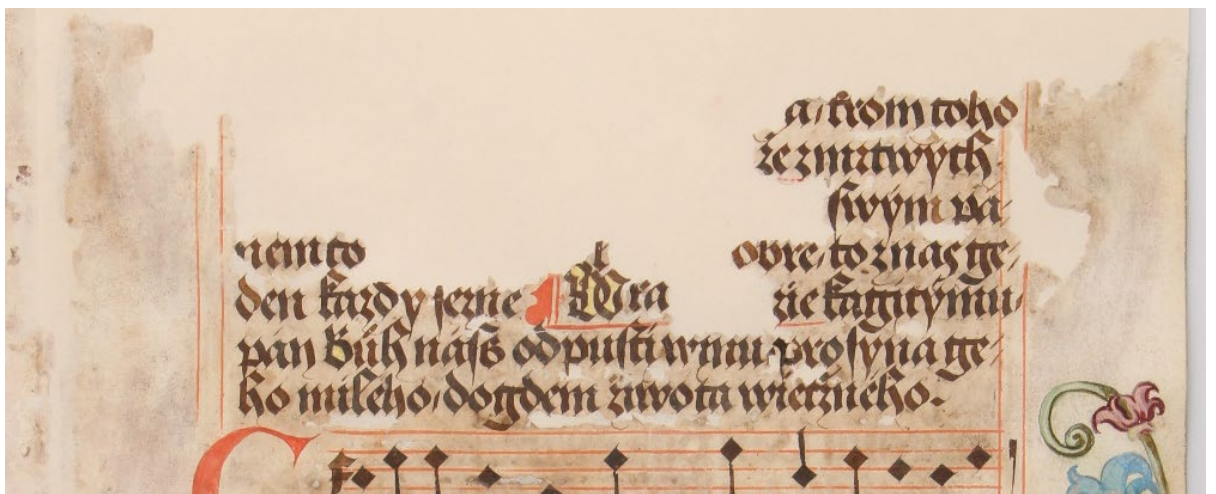 a, krom toho
že zmrtwych
swym pá-
nem to obre, to znas ge-
den každy gerne Wra že kagicymu
pan Buh nass odpusti wmu pro syna ge-
ho mileho, dogdem žiwota wiečzneho.